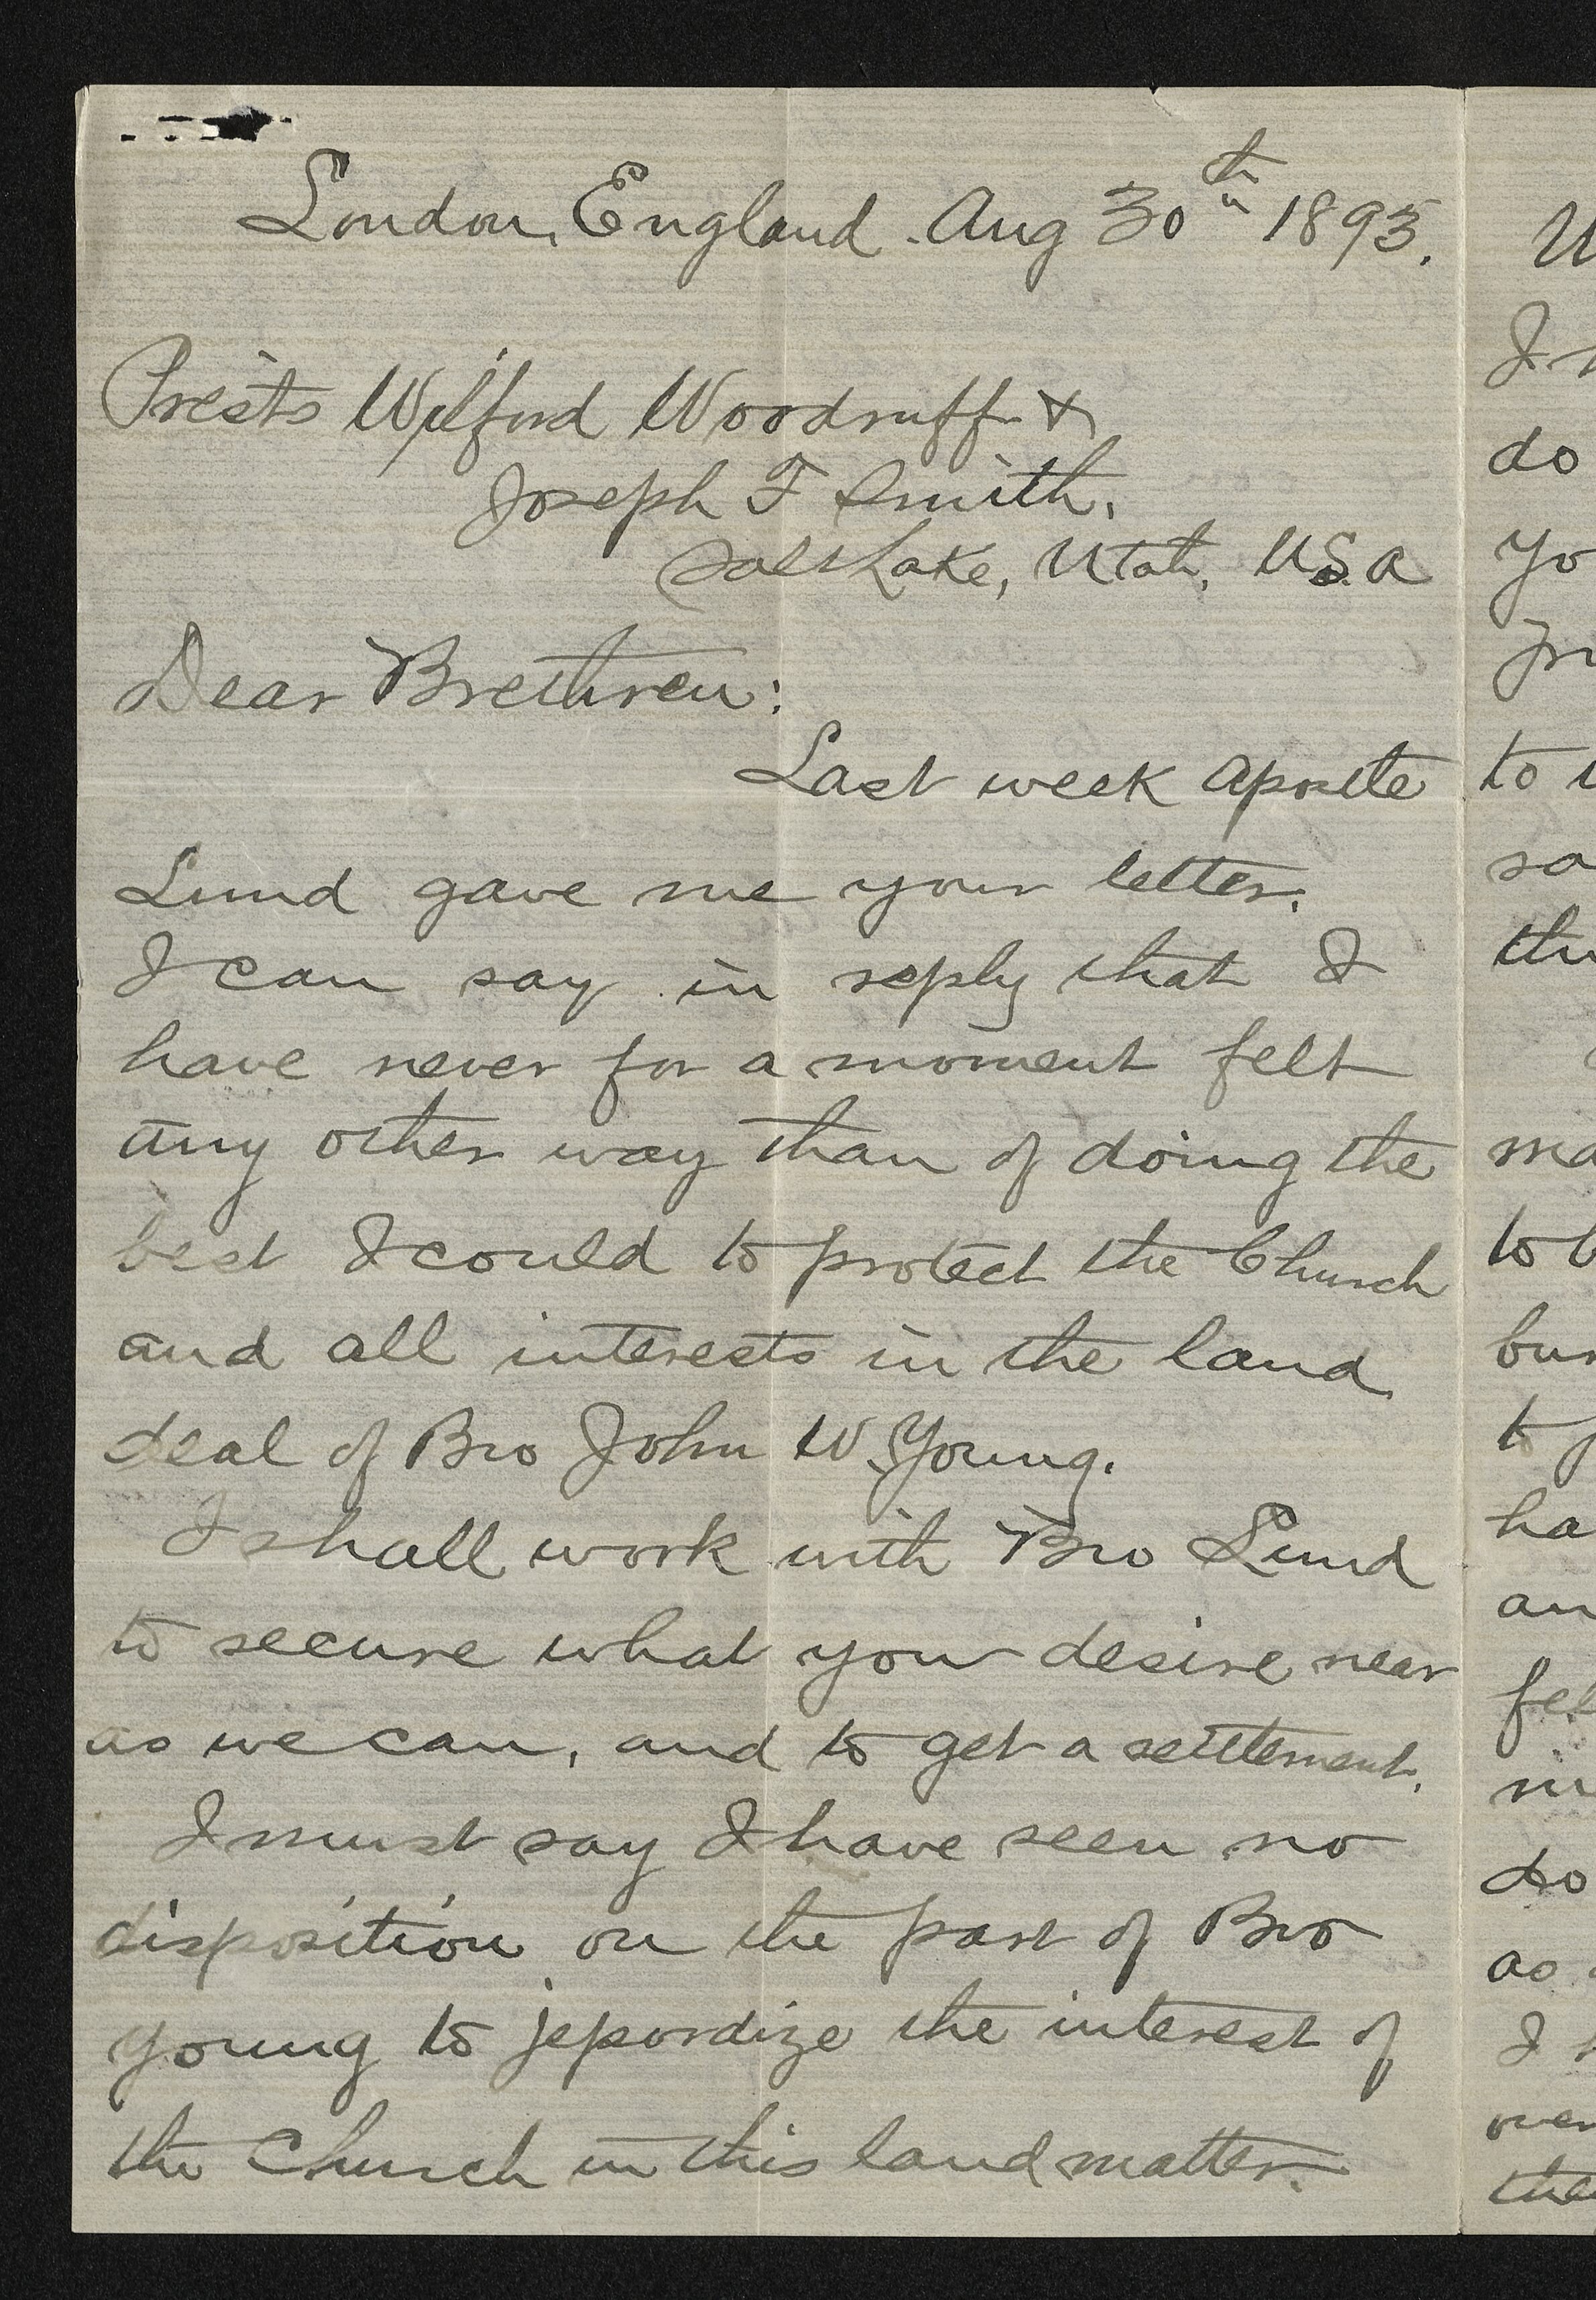 London, England. Aug 30th 1893.
Prests Wilford Woodruff &
Joseph F Smith,
Salt Lake, Utah, U.S.A
Dear Brethren:
Last week Apostle
Lund gave me your letter.
I can say in reply that I
have never for a moment felt
any other way than of doing the
best I could to protect the Church
and all interests in the land
deal of Bro John W. Young.
I shall work with Bro Lund
to secure what you desire near
as we can, and to get a settlement.
I must say I have seen no
disposition on the part of Bro
Young to jepordize the interest of
the Church in this land matter.
do
yo
to
so
ha
an
fel
do
as
I
over
the